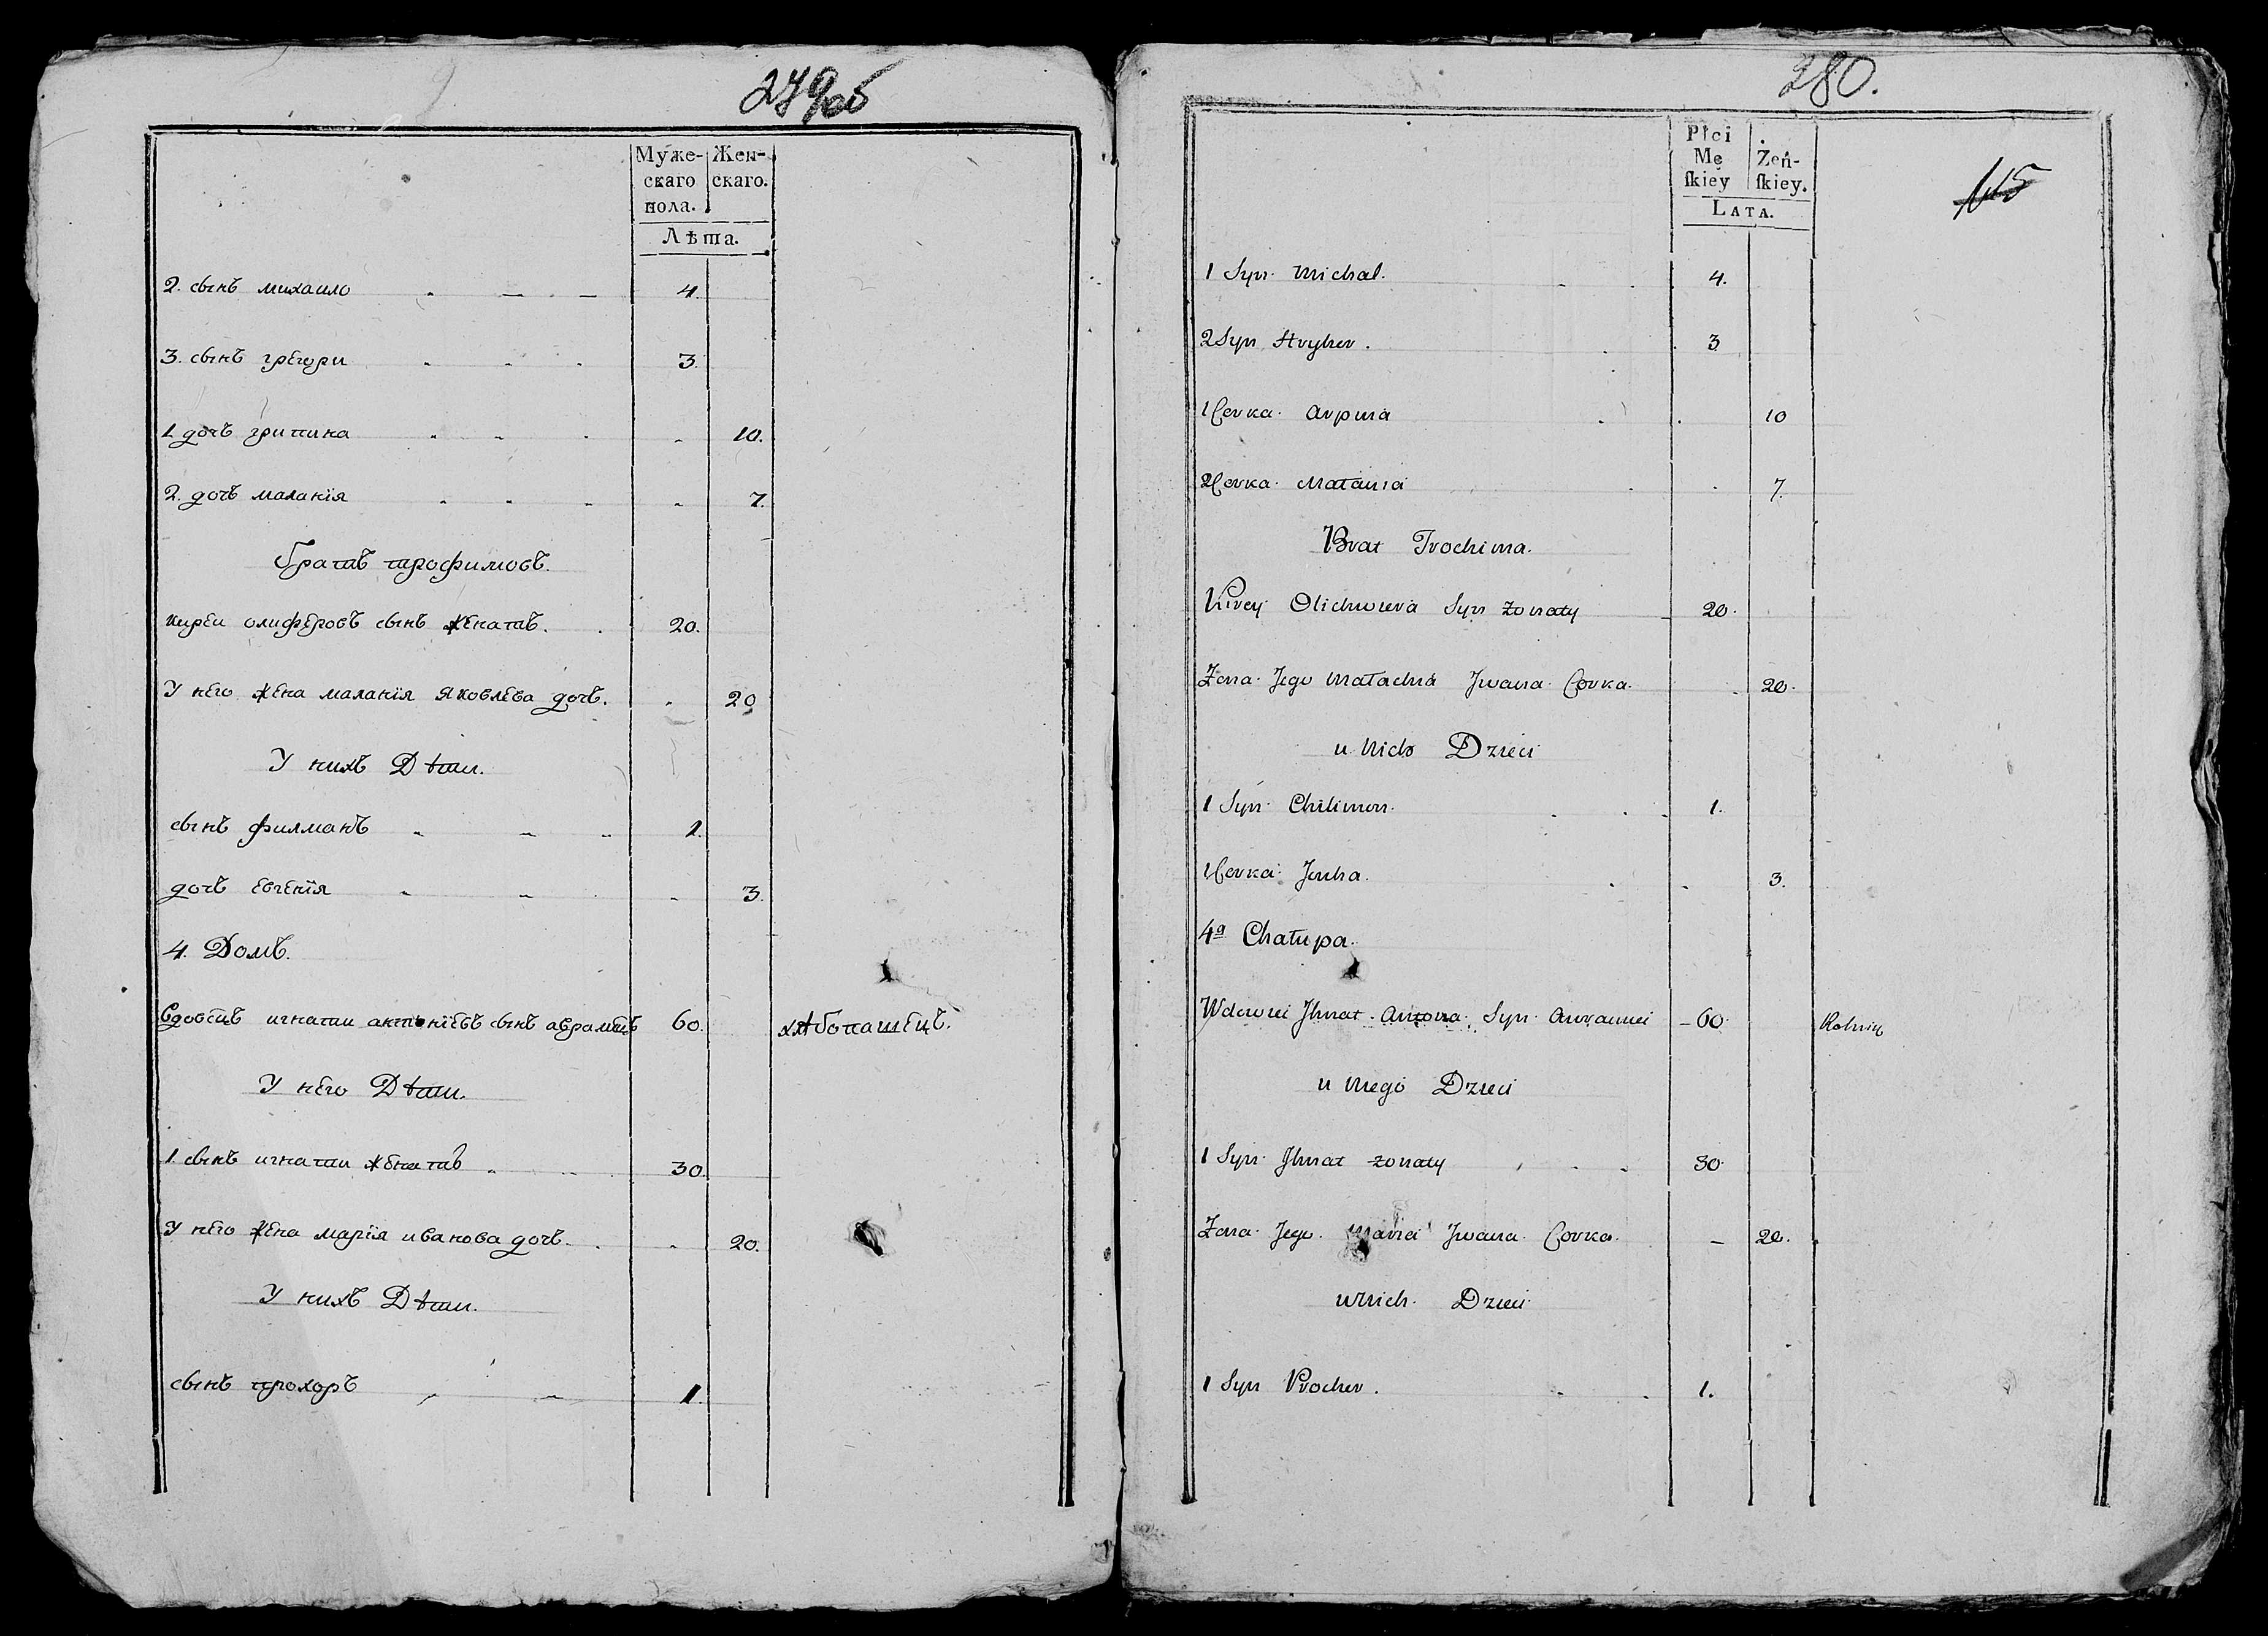 279об
Муже-
скаго
пола.
Жен-
скаго.
Лѣта.
2. сынъ михаило 4.
3. сынъ грегори 3.
1 дочь грипина 10.
2. дочь маланїя 7.
Братъ трофимовъ.
кирѣи олиферовъ сынъ женатъ. 20.
У него жена маланїя яковлева дочь. 20
У нихъ Дѣти.
сынъ филманъ 1.
дочь евгенїя 3.
4. Домъ.
Вдовецъ игнати антонїевъ сынъ аврамецъ 60. хлѣбопашецъ.
У него Дѣти.
1. сынъ игнати женатъ 30.
У него жена марїя иванова дочь. 20.
У нихъ Дѣти.
сынъ прохоръ 1.
280.
Płci
Mę
skiey
Żeń-
skiey.
Lata.
115
1 Syn Michal. 4.
2 Syn Hryher. 3
1 Corka 10
2 Corka Małania 7.
Brat Trochima.
Kirey Syn żonaty 20.
Żona Jego Jwana Corka. 20.
u Nich Dzieci
1 Syn Chilimon. 1.
1 Corka Jeuha. 3.
4a Chałupa.
Wdowiec Jhnat Antona Syn 60 Rolnik
u Niego Dzieci
1 Syn Jhnat żonaty 30
Żona Jego Maria Jwana Corka. 20.
u Nich Dzieci
1 Syn Procher. 1.